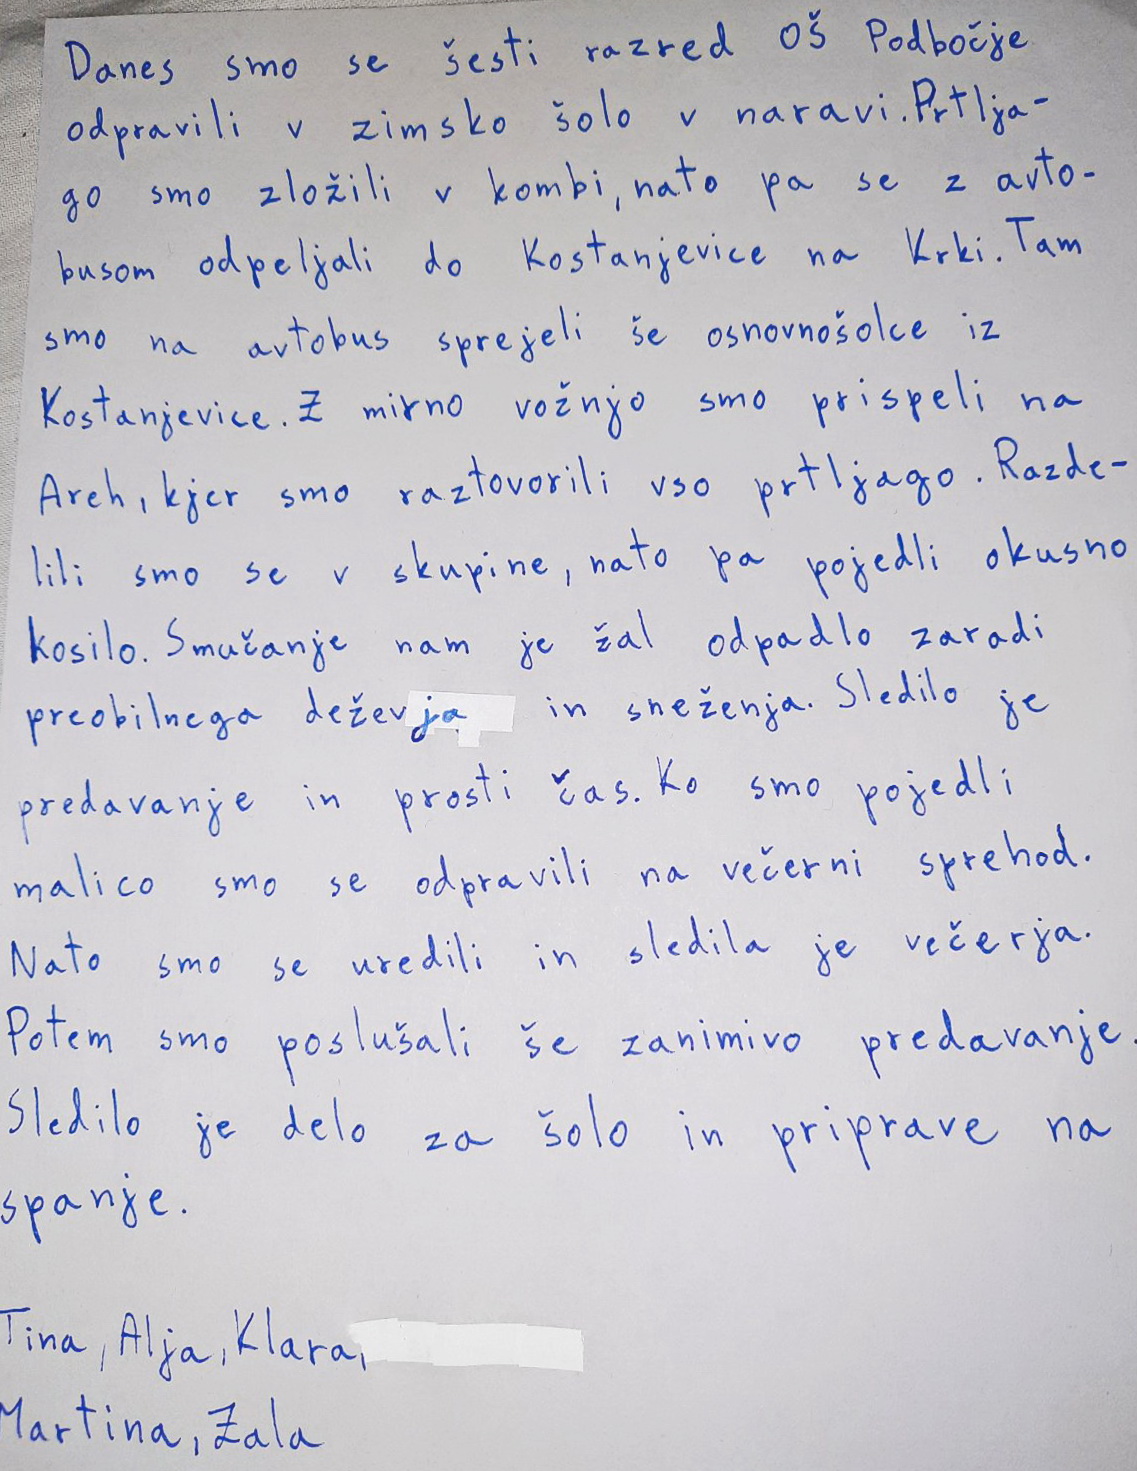 Danes smo se šesti razred OŠ Podbočje
odpravili v zimsko šolo v naravi. Prtlja-
go smo zložili v kombi, nato pa se z avto-
busom odpeljali do Kostanjevice na Krki. Tam
smo na avtobus sprejeli še osnovnošolce iz
Kostanjevice. Z mirno vožnjo smo prispeli na
Areh, kjer smo raztovorili vso prtljago. Razde-
lili smo se v skupine, nato pa pojedli okusno
kosilo. Smučanje nam je žal odpadlo zaradi
preobilnega deževja in sneženja. Sledilo je
predavanje in prosti čas. Ko smo pojedli
malico smo se odpravili na večerni sprehod.
Nato smo se uredili in sledila je večerja.
Potem smo poslušali še zanimivo predavanje.
Sledilo je delo za šolo in priprave na
spanje.
Tina, Alja, Klara,
Martina, Zala